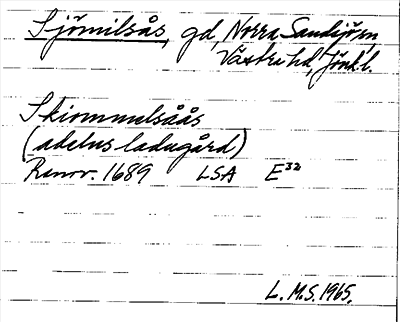 Sjömilsås, gd, Norra Sandsjö sn,
Västra hd, Jönk.l.
Skiommelsåås
(adelns ladugård)
Renov. 1689 LSA E³²
L.M.S. 1965.